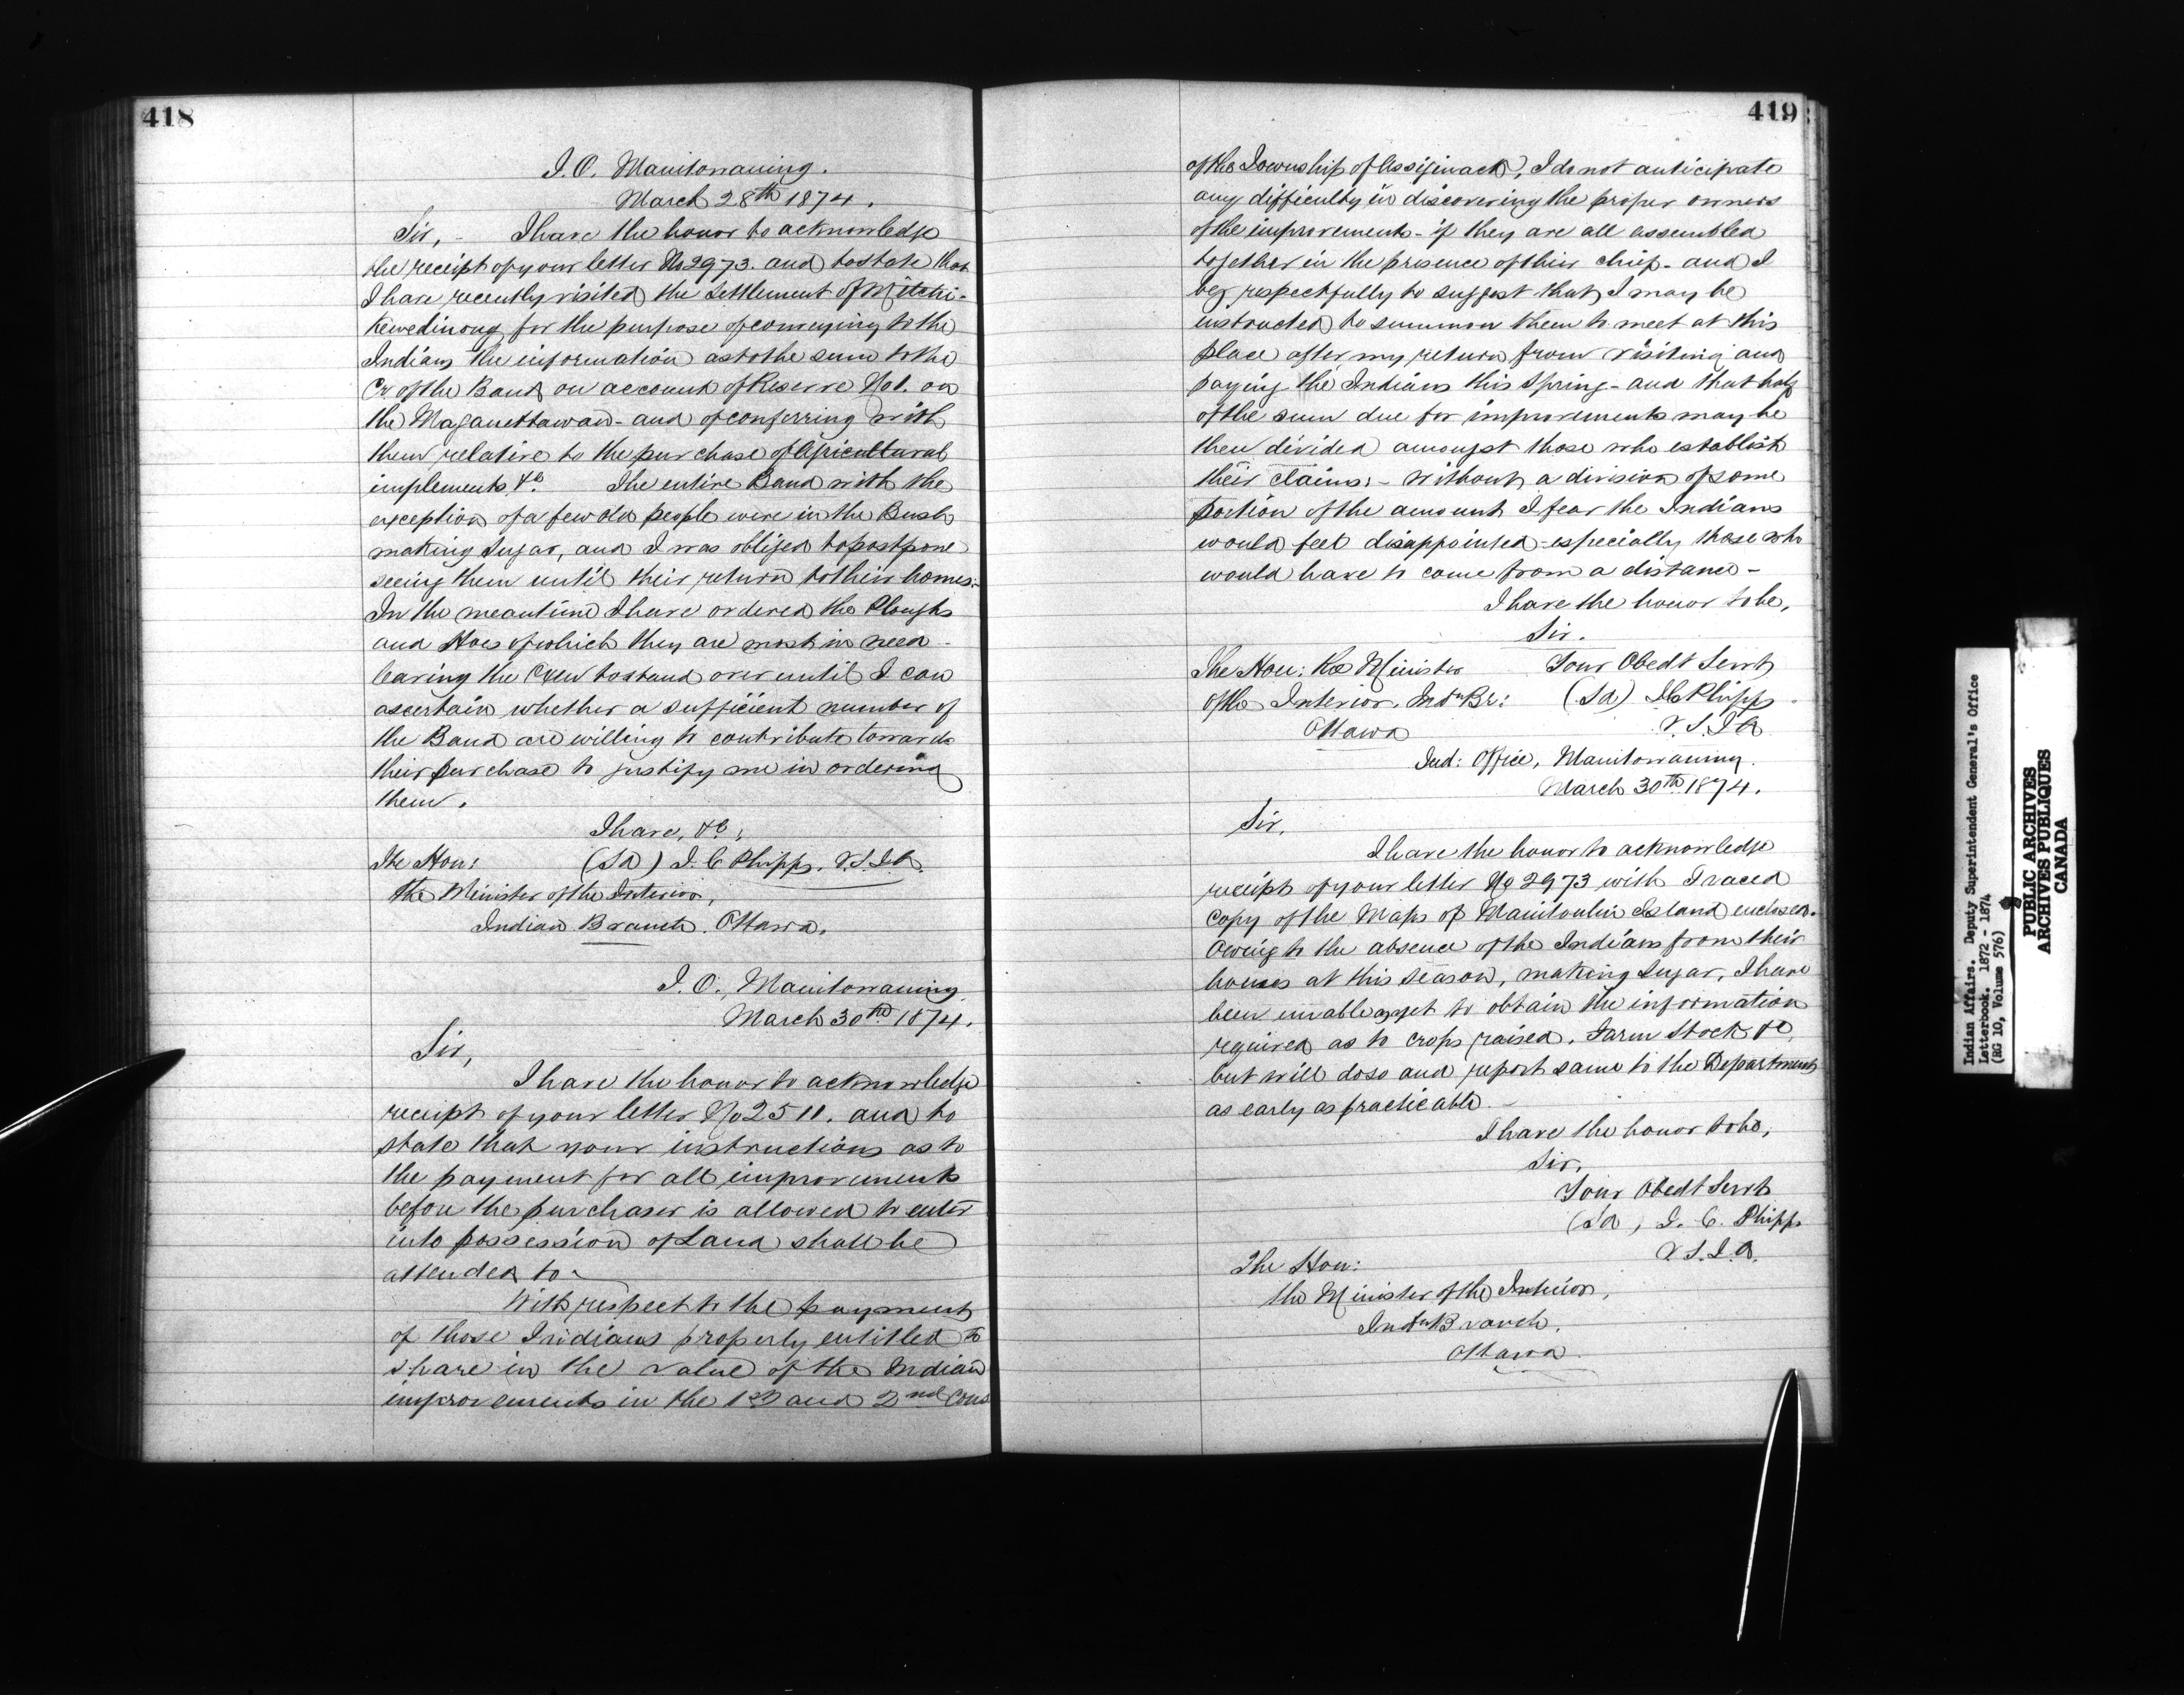 418
I.O. Manitowaning.
March 28th 1874.
Sir, - I have the honor to acknowledge
the receipt of your letter No 2973. and to state that
I have recently visited the Settlement of Mitchi-
kewedinong for the purpose of conveying to the
Indians the information as to the sum to the
Cr of the Band on account of Reserve No 1. on
the Maganettawan - and of conferring with
them relative to the purchase of Agricultural
implements &c. The entire Band with the
exception of a few old people were in the Bush
making Sugar, and I was obliged to postpone
seeing them until their return to their homes:-
In the meantime I have ordered the Ploughs
and Hoes of which they are most in need -
leaving the Oxen to stand over until I can
ascertain whether a sufficient number of
the Band are willing to contribute towards
their purchase to justify me in ordering
them.
I have, &c,
The Hon: (Sd) J. C Phipps. V.S.I.A.
the Minister of the Interior,
Indian Branch. Ottawa.
I. O., Manitowaning.
March 30th 1874.
Sir,
I have the honor to acknowledge
receipt of your letter No 2511. and to
state that your instructions as to
the payment for all improvements
before the purchaser is allowed to enter
into possession of Land shall be
attended to -
With respect to the payment
of those Indians properly entitled to
share in the value of the Indian
improvements in the 1st and 2nd Cons
419
of the Township of Assiginack, I do not anticipate
any difficulty in discovering the proper owners
of the improvements - if they are all assembled
together in the presence of their chief - and I
beg respectfully to suggest that I may be
instructed to summon them to meet at this
place after my return from visiting and
paying the Indians this Spring - and that half
of the sum due for improvements may be
then divided amongst those who establish
their claims: - Without a division of some
portion of the amount I fear the Indians
would feel disappointed - especially those who
would have to come from a distance -
I have the honor to be,
Sir.
The Hon: the Minister Your Obedt Servt
of the Interior. Indn Br: (Sd) J C Phipps.
Ottawa V.S.I.A
Ind: Office, Manitowaning.
March 30th 1874.
Sir,
I have the honor to acknowledge
receipt of your letter No 2973 with Traced
copy of the Maps of Manitoulin Island enclosed.
Owing to the absence of the Indians from their
houses at this season, making Sugar, I have
been unable as yet to obtain the information
required as to crops raised. Farm Stock &c,
but will do so and report same to the Department
as early as practicable. -
I have the honor to be,
Sir,
Your Obedt Servt
(Sd, J. C. Phipps
V.S.I.A.
The Hon:
the Minister of the Interior,
Indn Branch.
Ottawa.
Indian Affairs. Deputy Superintendent General's Office
Letterbook. 1872 - 1874
(RG 10, Volume 576)
PUBLIC ARCHIVES
ARCHIVES PUBLIQUES
CANADA